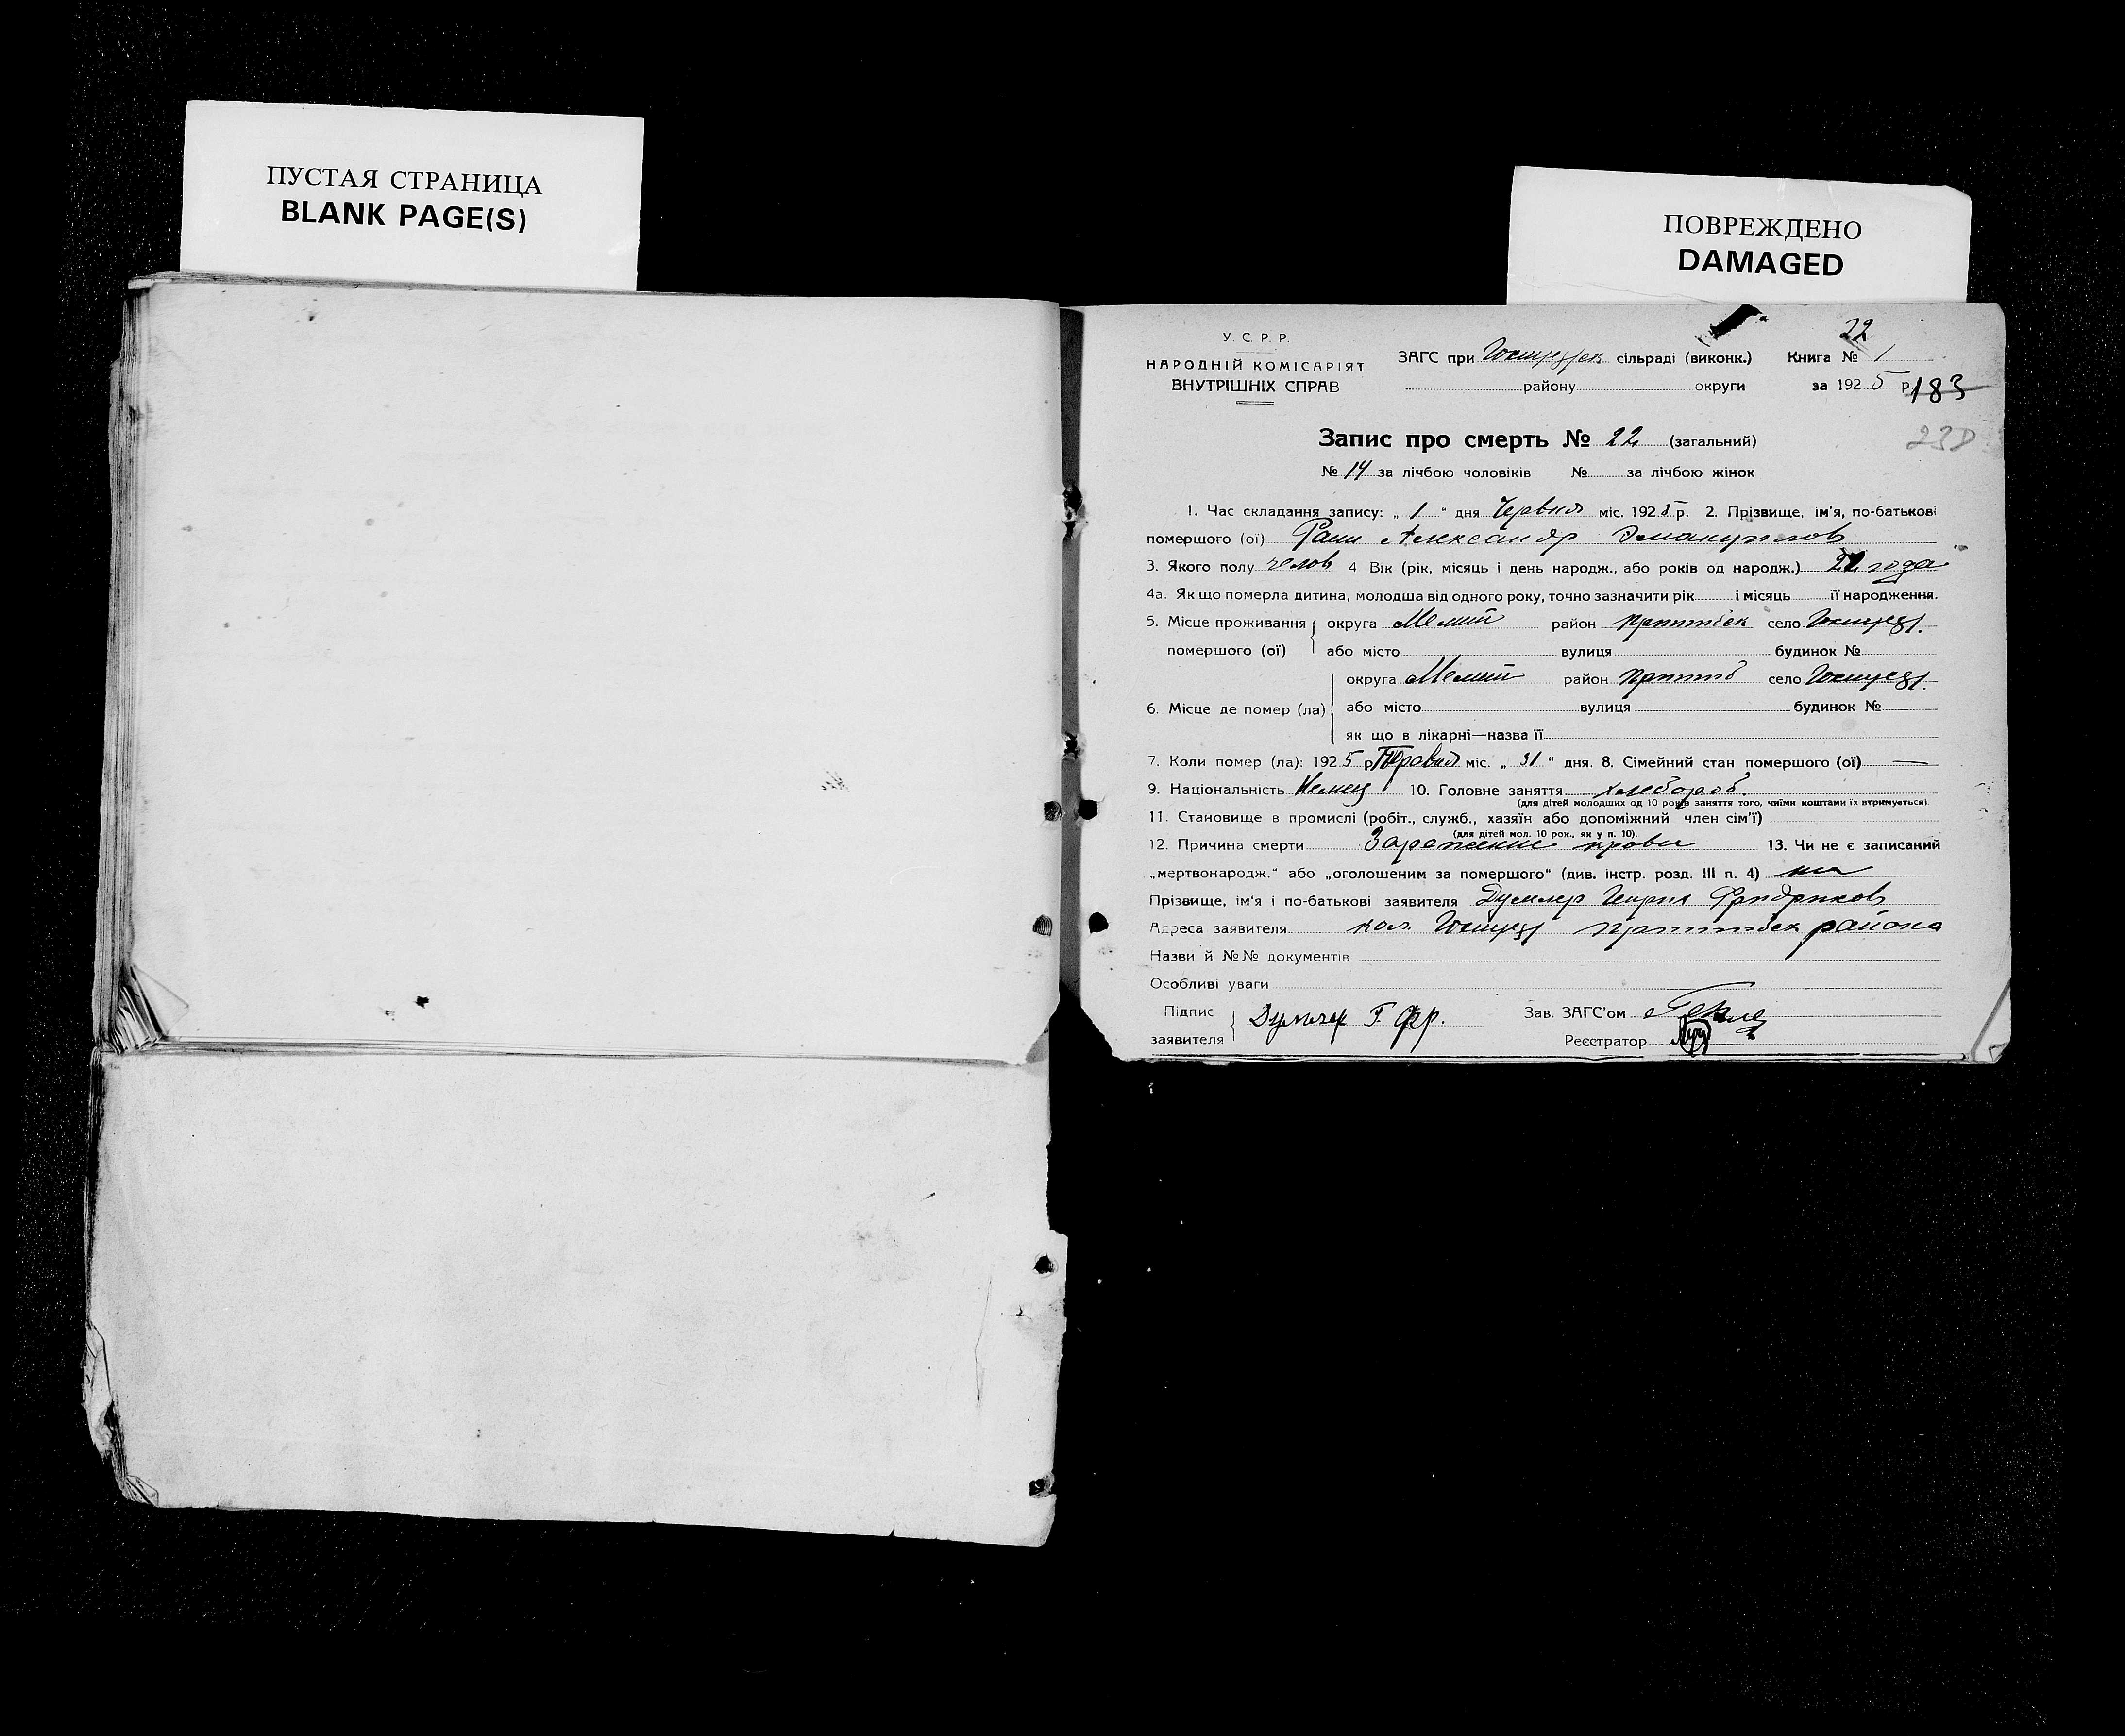 ПУСТАЯ СТРАНИЦА
BLANK PAGE(S)
ПОВРЕЖДЕНО
DAMAGED
22
У. С. Р. Р.
НАРОДНІЙ КОМІСАРІЯТ
ВНУТРІШНІХ СПРАВ
ЗАГС при сільраді (виконк.) Книга № 1
району округи за 1925 р.
183
Запис про смерть № 22 (загальний)
№ 14 за лічбою чоловіків № за лічбою жінок
1. Час складання запису: „ 1 “ дня Червня міс. 1925 р. 2. Прізвище, ім'я, по-батькові
помершого (ої) Александр
3. Якого полу челов 4 Вік (рік, місяць і день народж., або років од народж.) года
4а. Як що померла дитина, молодша від одного року, точно зазначити рік і місяць її народження.
5. Місце проживання округа Мелит район село
помершого (ої) або місто вулиця будинок №
округа Мелит район село
6. Місце де помер (ла) або місто вулиця будинок №
як що в лікарні—назва її
7. Коли помер (ла): 1925 р. Травня міс. „ 31 “ дня. 8. Сімейний стан помершого (ої) —
9. Національність Немец 10. Головне заняття хлебороб.
(для дітей молодших од 10 років заняття того, чиїми коштами їх втримується)
11. Становище в промислі (робіт., служб., хазяїн або допоміжний член сім'ї)
(для дітей мол. 10 рок., як у п. 10).
12. Причина смерти Заражение крови 13. Чи не є записаний
„мертвонародж.“ або „оголошеним за помершого“ (див. інстр. розд. III п. 4)
Прізвище, ім'я і по-батькові заявителя Думлер Фридрихов
Адреса заявителя кол. района
Назви й №№ документів
Особливі уваги
Підпис
заявителя Думлер Г. Фр.
Зав. ЗАГС'ом
Реєстратор